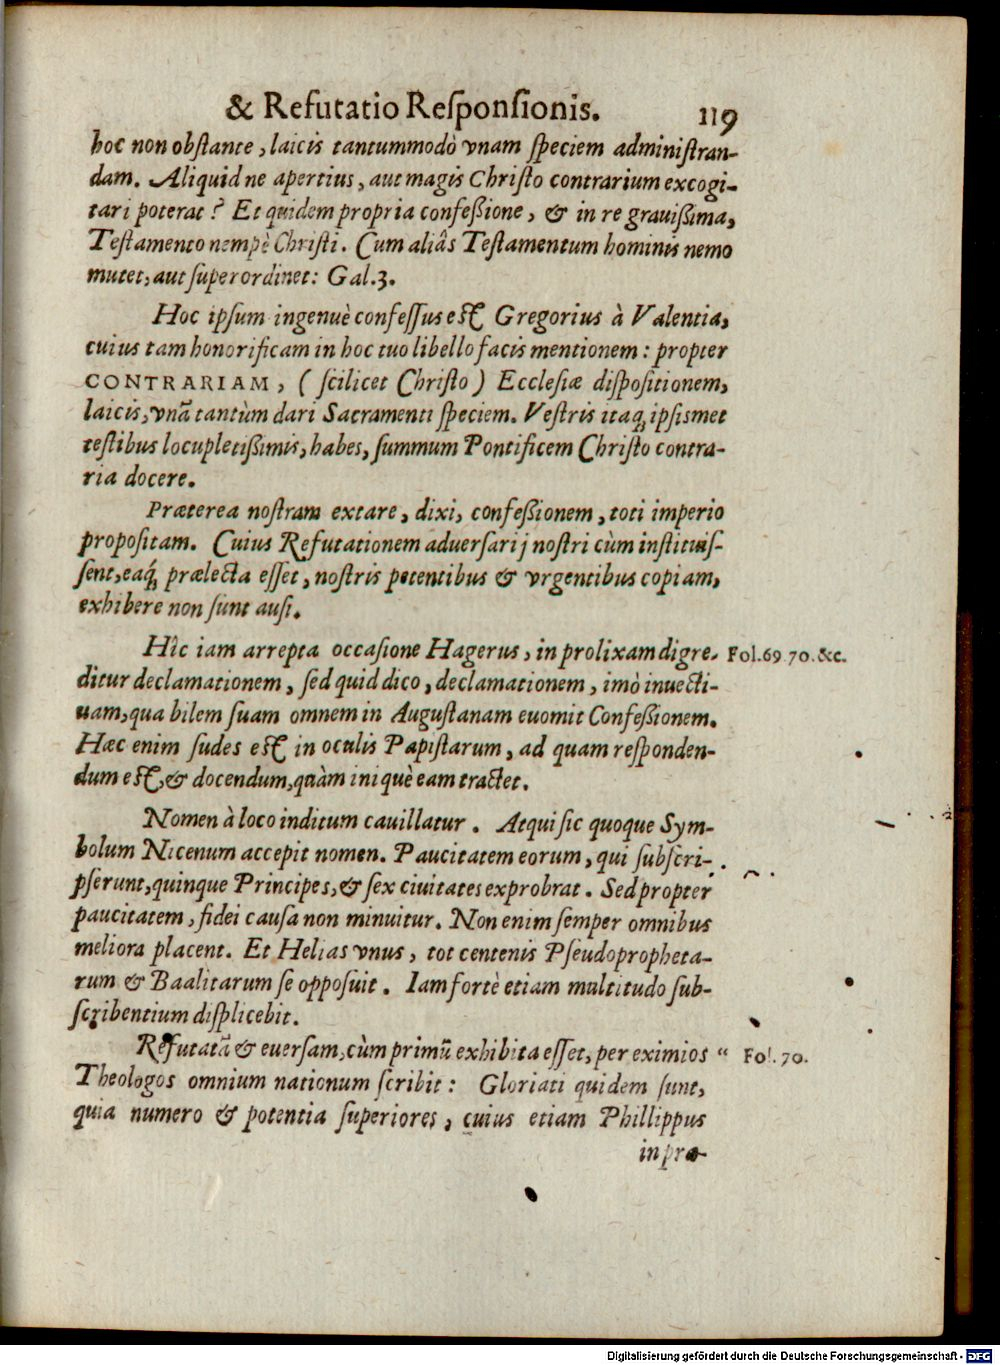 & Refutatio Reſponſionis. 119
hoc non obſtante, laicis tantummodò vnam ſpeciem adminiſtran-
dam. Aliquid ne apertius, aut magis Chriſto contrarium excogi-
tari poterat? Et quidem propria confeßione, & in re grauißima,
Teſtamento nempè Chriſti. Cum aliâs Teſtamentum hominis nemo
mutet, aut ſuperordinet: Gal. 3.
Hoc ipſum ingenuè confeſſus eſt Gregorius à Valentia,
cuius tam honorificam in hoc tuo libello facis mentionem: propter
CONTRARIAM, (ſcilicet Chriſto) Eccleſiæ diſpoſitionem,
laicis, vnã tantùm dari Sacramenti ſpeciem. Veſtris itaq; ipſismet
teſtibus locupletißimis, habes, ſummum Pontificem Chriſto contra-
ria docere.
Præterea noſtram extare, dixi, confeßionem, toti imperio
propoſitam. Cuius Refutationem aduerſarij noſtri cùm inſtituiſ-
ſent, eaq́; prælecta eſſet, noſtris petentibus & vrgentibus copiam,
exhibere non ſunt auſi.
Hîc iam arrepta occaſione Hagerus, in prolixam digre- Fol. 69 70. &c.
ditur declamationem, ſed quid dico, declamationem, imò inuecti-
uam, qua bilem ſuam omnem in Auguſtanam euomit Confeßionem.
Hæc enim ſudes eſt in oculis Papiſtarum, ad quam reſponden-
dum eſt, & docendum, quàm iniquè eam tractet.
Nomen à loco inditum cauillatur. Atqui ſic quoque Sym-
bolum Nicenum accepit nomen. Paucitatem eorum, qui ſubſcri-
pſerunt, quinque Principes, & ſex ciuitates exprobrat. Sed propter
paucitatem, fidei cauſa non minuitur. Non enim ſemper omnibus
meliora placent. Et Helias vnus, tot centenis Pſeudopropheta-
rum & Baalitarum ſe oppoſuit. Iam fortè etiam multitudo ſub-
ſcribentium diſplicebit.
Refutatã & euerſam, cùm primũ exhibita eſſet, per eximios “ Fol. 70.
Theologos omnium nationum ſcribit: Gloriati quidem ſunt,
quia numero & potentia ſuperiores, cuius etiam Phillippus
in præ-
Digitalisierung gefördert durch die Deutsche Forschungsgemeinschaft - DFG